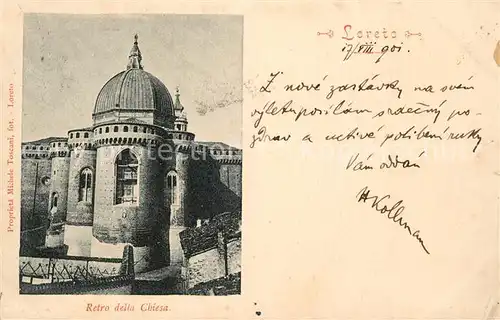 Loreto
17/VIII 901.
Z nové zastávky na svém
výletu posílám srdečný po-
zdrav a uctivé políbení ruky
Vám oddaný
Kollmann
Proprietà Michele Toscani, fot. - Loreto
Retro della Chiesa.